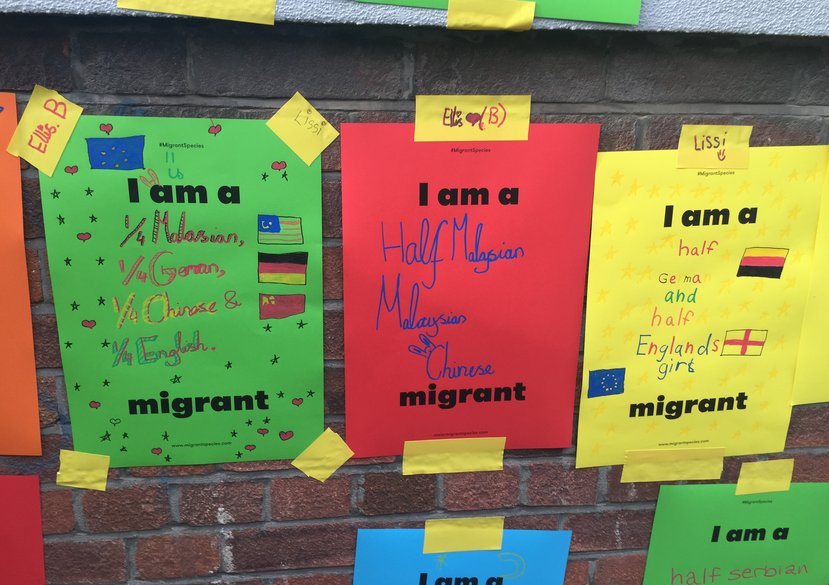 Ellis. B
Lissi
#MigrantSpecies
I am a
1/4 Malasian,
1/4 German,
1/4 Chinese &
1/4 English.
migrant
www.migrantspecies.com
Ellis (B)
#MigrantSpecies
I am a
Half Malaysian
Malaysian
Chinese
migrant
www.migrantspecies.com
Lissi
#MigrantSpecies
I am a
half
Germa
and
half
Englands
girl
migrant
www.migrantspecies.com
I am a
I am a
half serbian